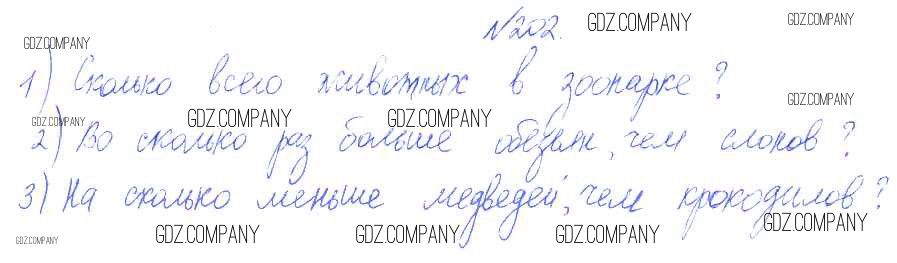 №202. GDZ.COMPANY GDZ.COMPANY
GDZ.COMPANY
1) Сколько всего животных в зоопарке?
GDZ.COMPANY
GDZ.COMPANY GDZ.COMPANY GDZ.COMPANY
2) Во сколько раз больше обезьян, чем слонов?
3) На сколько меньше медведей, чем крокодилов?
GDZ.COMPANY GDZ.COMPANY GDZ.COMPANY GDZ.COMPANY GDZ.COMPANY